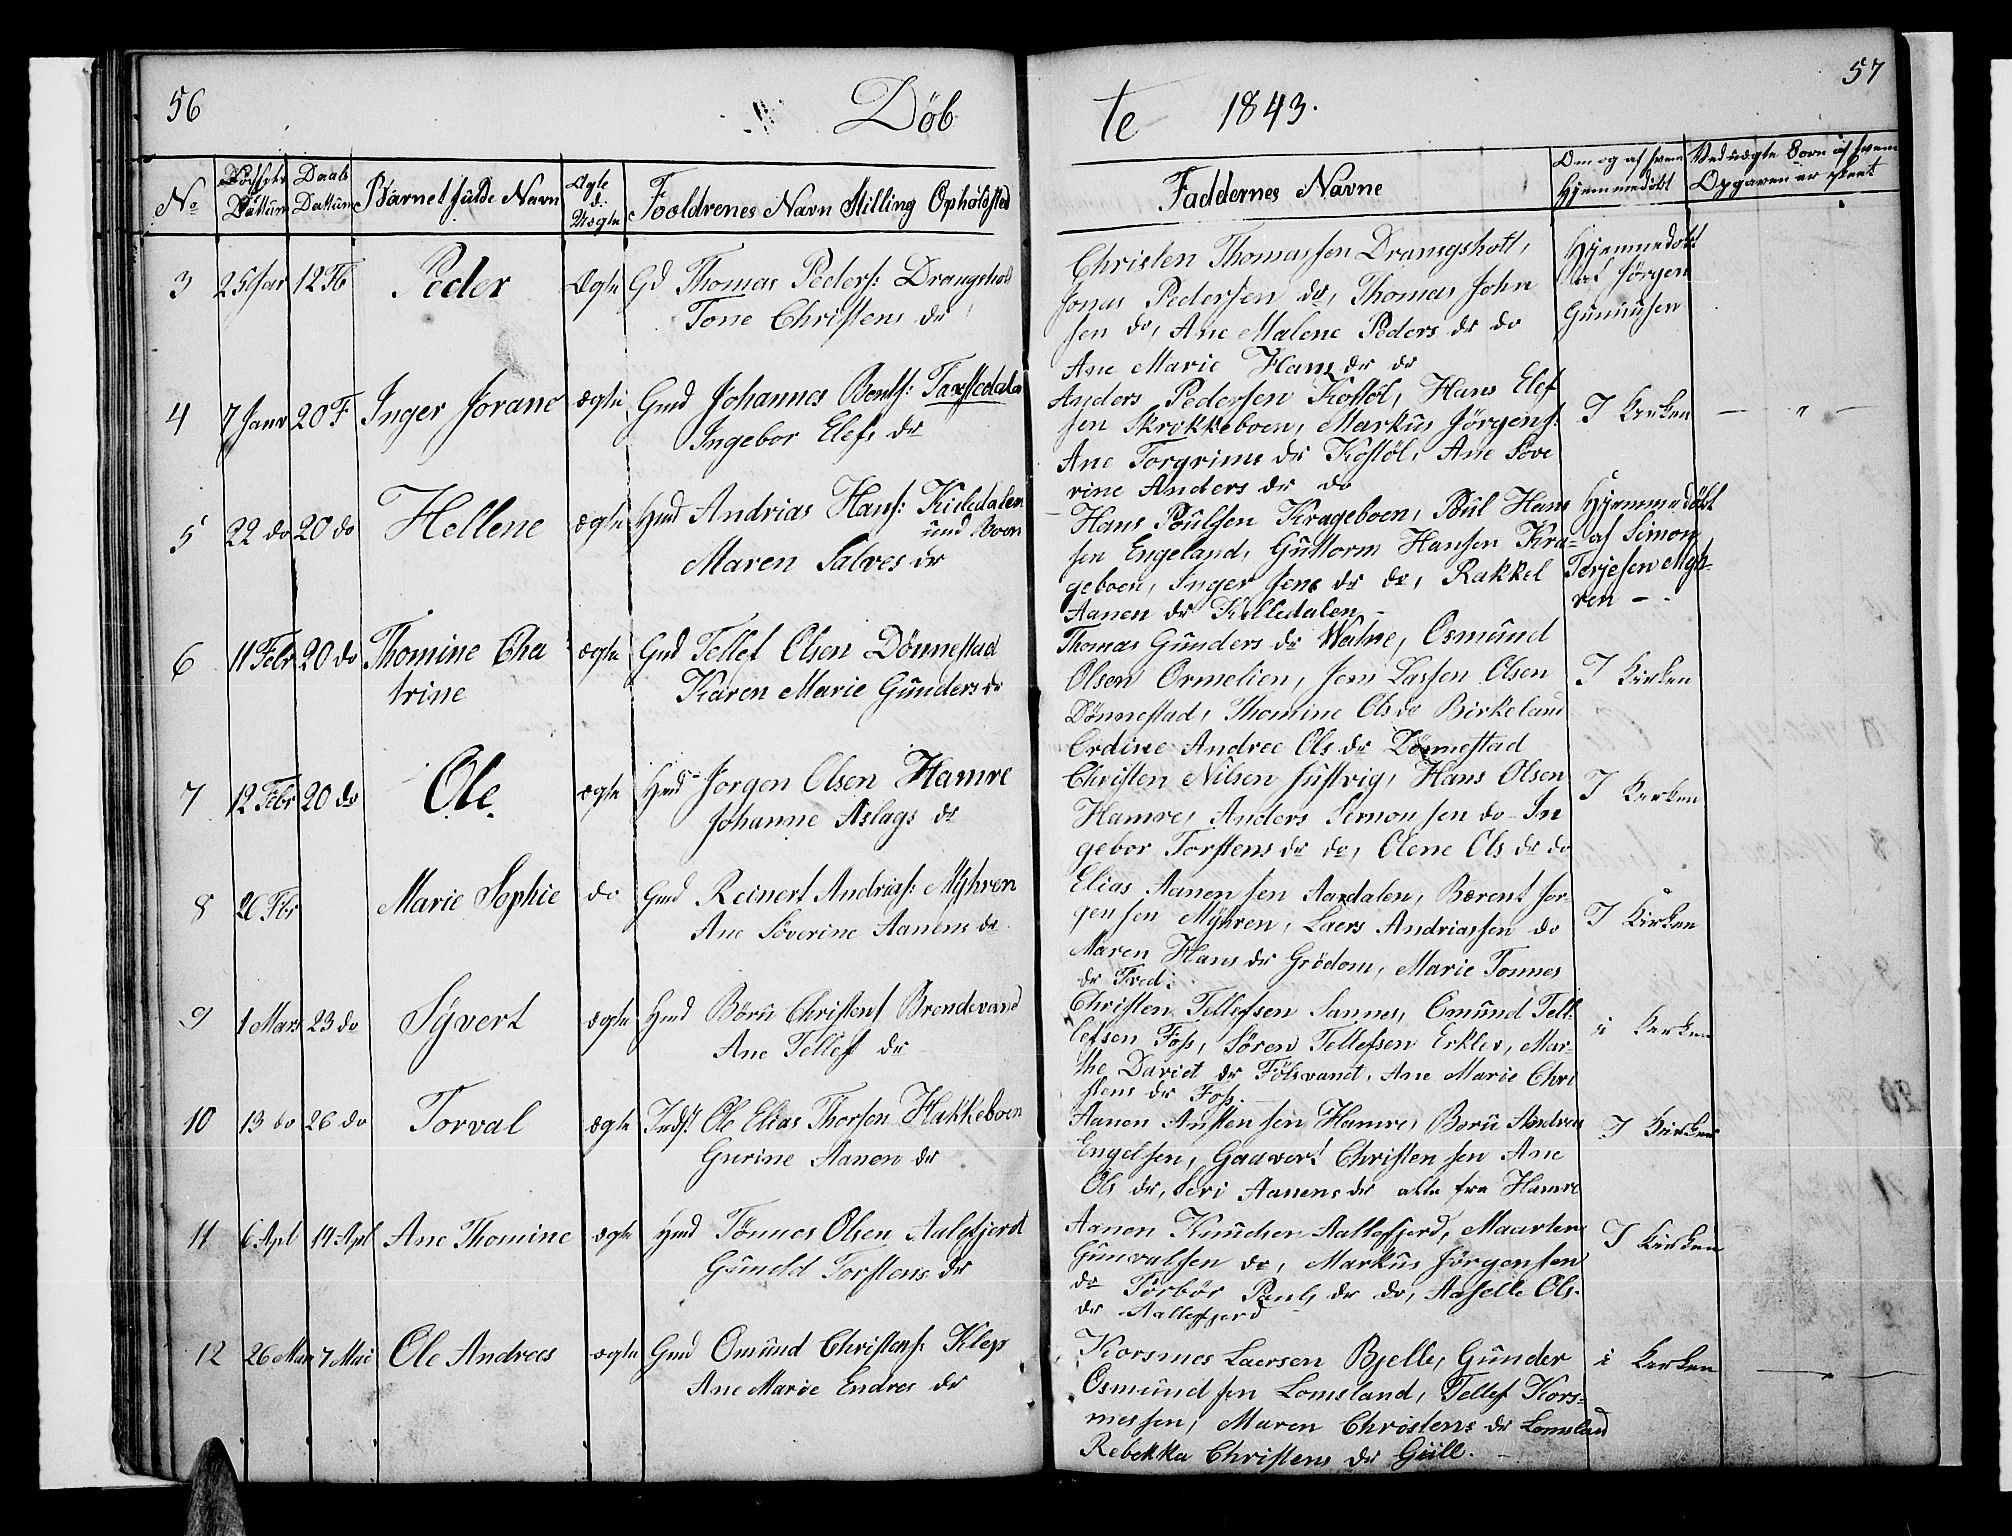 56
Döb
te 1843.
57
No
Datum
Daabs Dattum
Barnet fulde Navn
Ægte
Uægte
Navn Stilling Opholdsted
Faddernes Navne
Om og af hvem
Hjemmedöbt
Ved uægte Börn af hvem
Opgaven er skeet
3 25 Jar 12 Fb Peder Ægte Gd Thomas Peders: Drangsholt
Tone Christens dr
Christen Thomassen Drangsholt,
Jonas Pedersen do, Thomas John
sen do, Ane Malene Peders dr do
Ane Marie Hans dr do
Hjemmedobt
Jörgen
Gunnusen
4 7 Janr 20 F Inger Jorane ægte Gmd Johannes Bents:
Ingebor Elefs dr
Anders Pedersen Kostöl, Hans Elef
sen Skrokkeboen, Markus Jörgens:
Ane Torgrims dr Kostöl, Ane Söve
rine Anders dr do
I Kirken — " —
5 22 do 20 do Hellene ægte Hmd Andrias Hans: Killedalen
und Boen
Maren Salves dr
Hans Poulsen Krageboen, Poul Hans
sen Engeland, Guttorm Hansen Kra-
geboen, Inger Jens dr do, Rakkel
Aanen dr Killedalen –
Hjemmedöbt
af Simon
Terjesen Myh-
ren –
6 11 Febr 20 do Thomine Cha
trine
ægte Gmd Tellef Olsen Dönnestad
Karen Marie Gunders dr
Thomas Gunders dr Watne, Osmund
Olsen Ormelien, Jens Lassen Olsen
Dönnestad, Thomine Ols dr Birkeland
Ordine Andree Ols dr Dönnestad
I Kirken
7 12 Febr 20 do Ole. ægte Hmd Jorgen Olsen Hamre
Johanne Aslags dr
Christen Nilsen Justvig, Hans Olsen
Hamre, Anders Simonsen do In
gebor Torstens dr do, Olene Ols dr do
I Kirken
8 26 Fbr Marie Sophie do Gmd Reinert Andrias: Myhren
Ane Söverine Aanens dr
Elias Aanensen Aardalen, Bærent Jor-
gensen Myhren, Laers Andriassen do
Maren Hans dr Grödom, Marie Tonnes
dr Tved.
I Kirken
9 1 Mars 23 do Syvert ægte Hmd Böru Christens Brendevand
Ane Tellefs dr
Christen Tellefsen Sannes, Omund Tell-
lefsen Foss, Sören Tellefsen Erklev, Mar-
the David dr Fölsvand, Ane Marie Chri
stens dr Foss.
i Kirken
10 13 do 26 do Torval ægte Inds: Ole Elias Thorsen Hakkeboen
Gurine Aanen dr
Aanen Austensen Hamre, Boru Andrea
Engelsen, Gauvert Christensen Ane
Ols dr, Seri Aanens dr alle fra Hamre
I Kirken
11 6 Apl 14 Apl Ane Thomine ægte Hmd Tönnes Olsen Aalefjerd
Gunild Torstens dr
Aanen Knudsen Aallefjerd, Maarten
Gunvalsen do, Markus Jörgensen
do Törbör Pauls dr do, Ols.
dr Aallefjerd
I Kirken
12 26 Mars 7 Mai Ole Andreas ægte Gmd Omund Christens: Klep
Ane Marie Endres dr
Korsmes Laersen Bjelle, Gunder
Osmundsen Lomsland, Tellef Kors-
messen, Maren Christens dr Lomsland
Rebekka Christens dr Güll. –
i Kirken